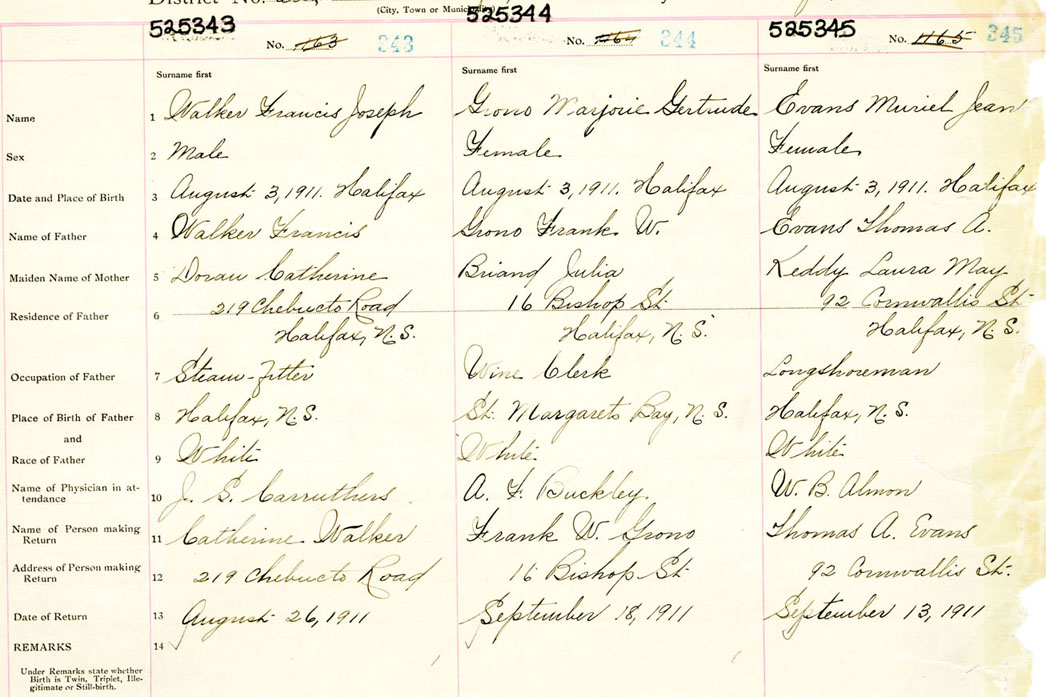 District No.
(City, Town or Munici
525343 525344 525345
No. 1163 343 No. 344 No. 1165 345
Surname first Surname first Surname first
Name 1 Walker Francis Joseph Grono Marjorie Gertrude Evans Muriel Jean
Sex 2 Male Female Female
Date and Place of Birth 3 August 3, 1911. Halifax August 3, 1911. Halifax August 3, 1911. Halifax
Name of Father 4 Walker Francis Grono Frank W. Evans Thomas A.
Maiden Name of Mother 5 Doran Catherine Briand Julia Keddy Laura May
Residence of Father 6 219 Chebucto Road 16 Bishop St. 92 Cornwallis St.
Halifax, N.S. Halifax, N.S. Halifax, N.S.
Occupation of Father 7 Steam-fitter Wine Clerk Longshoreman
Place of Birth of Father 8 Halifax, N.S. St. Margarets Bay, N.S. Halifax, N.S.
and
Race of Father 9 White White White
Name of Physician in at-
tendance 10 J. S. Carruthers A. F. Buckley. W. B. Almon
Name of Person making
Return 11 Catherine Walker Frank W. Grono Thomas A. Evans
Address of Person making
Return 12 219 Chebucto Road 16 Bishop St. 92 Cornwallis St.
Date of Return 13 August 26, 1911 September 18, 1911 September 13, 1911
REMARKS 14
Under Remarks state whether
Birth is Twin, Triplet, Ille-
gitimate or Still-birth.